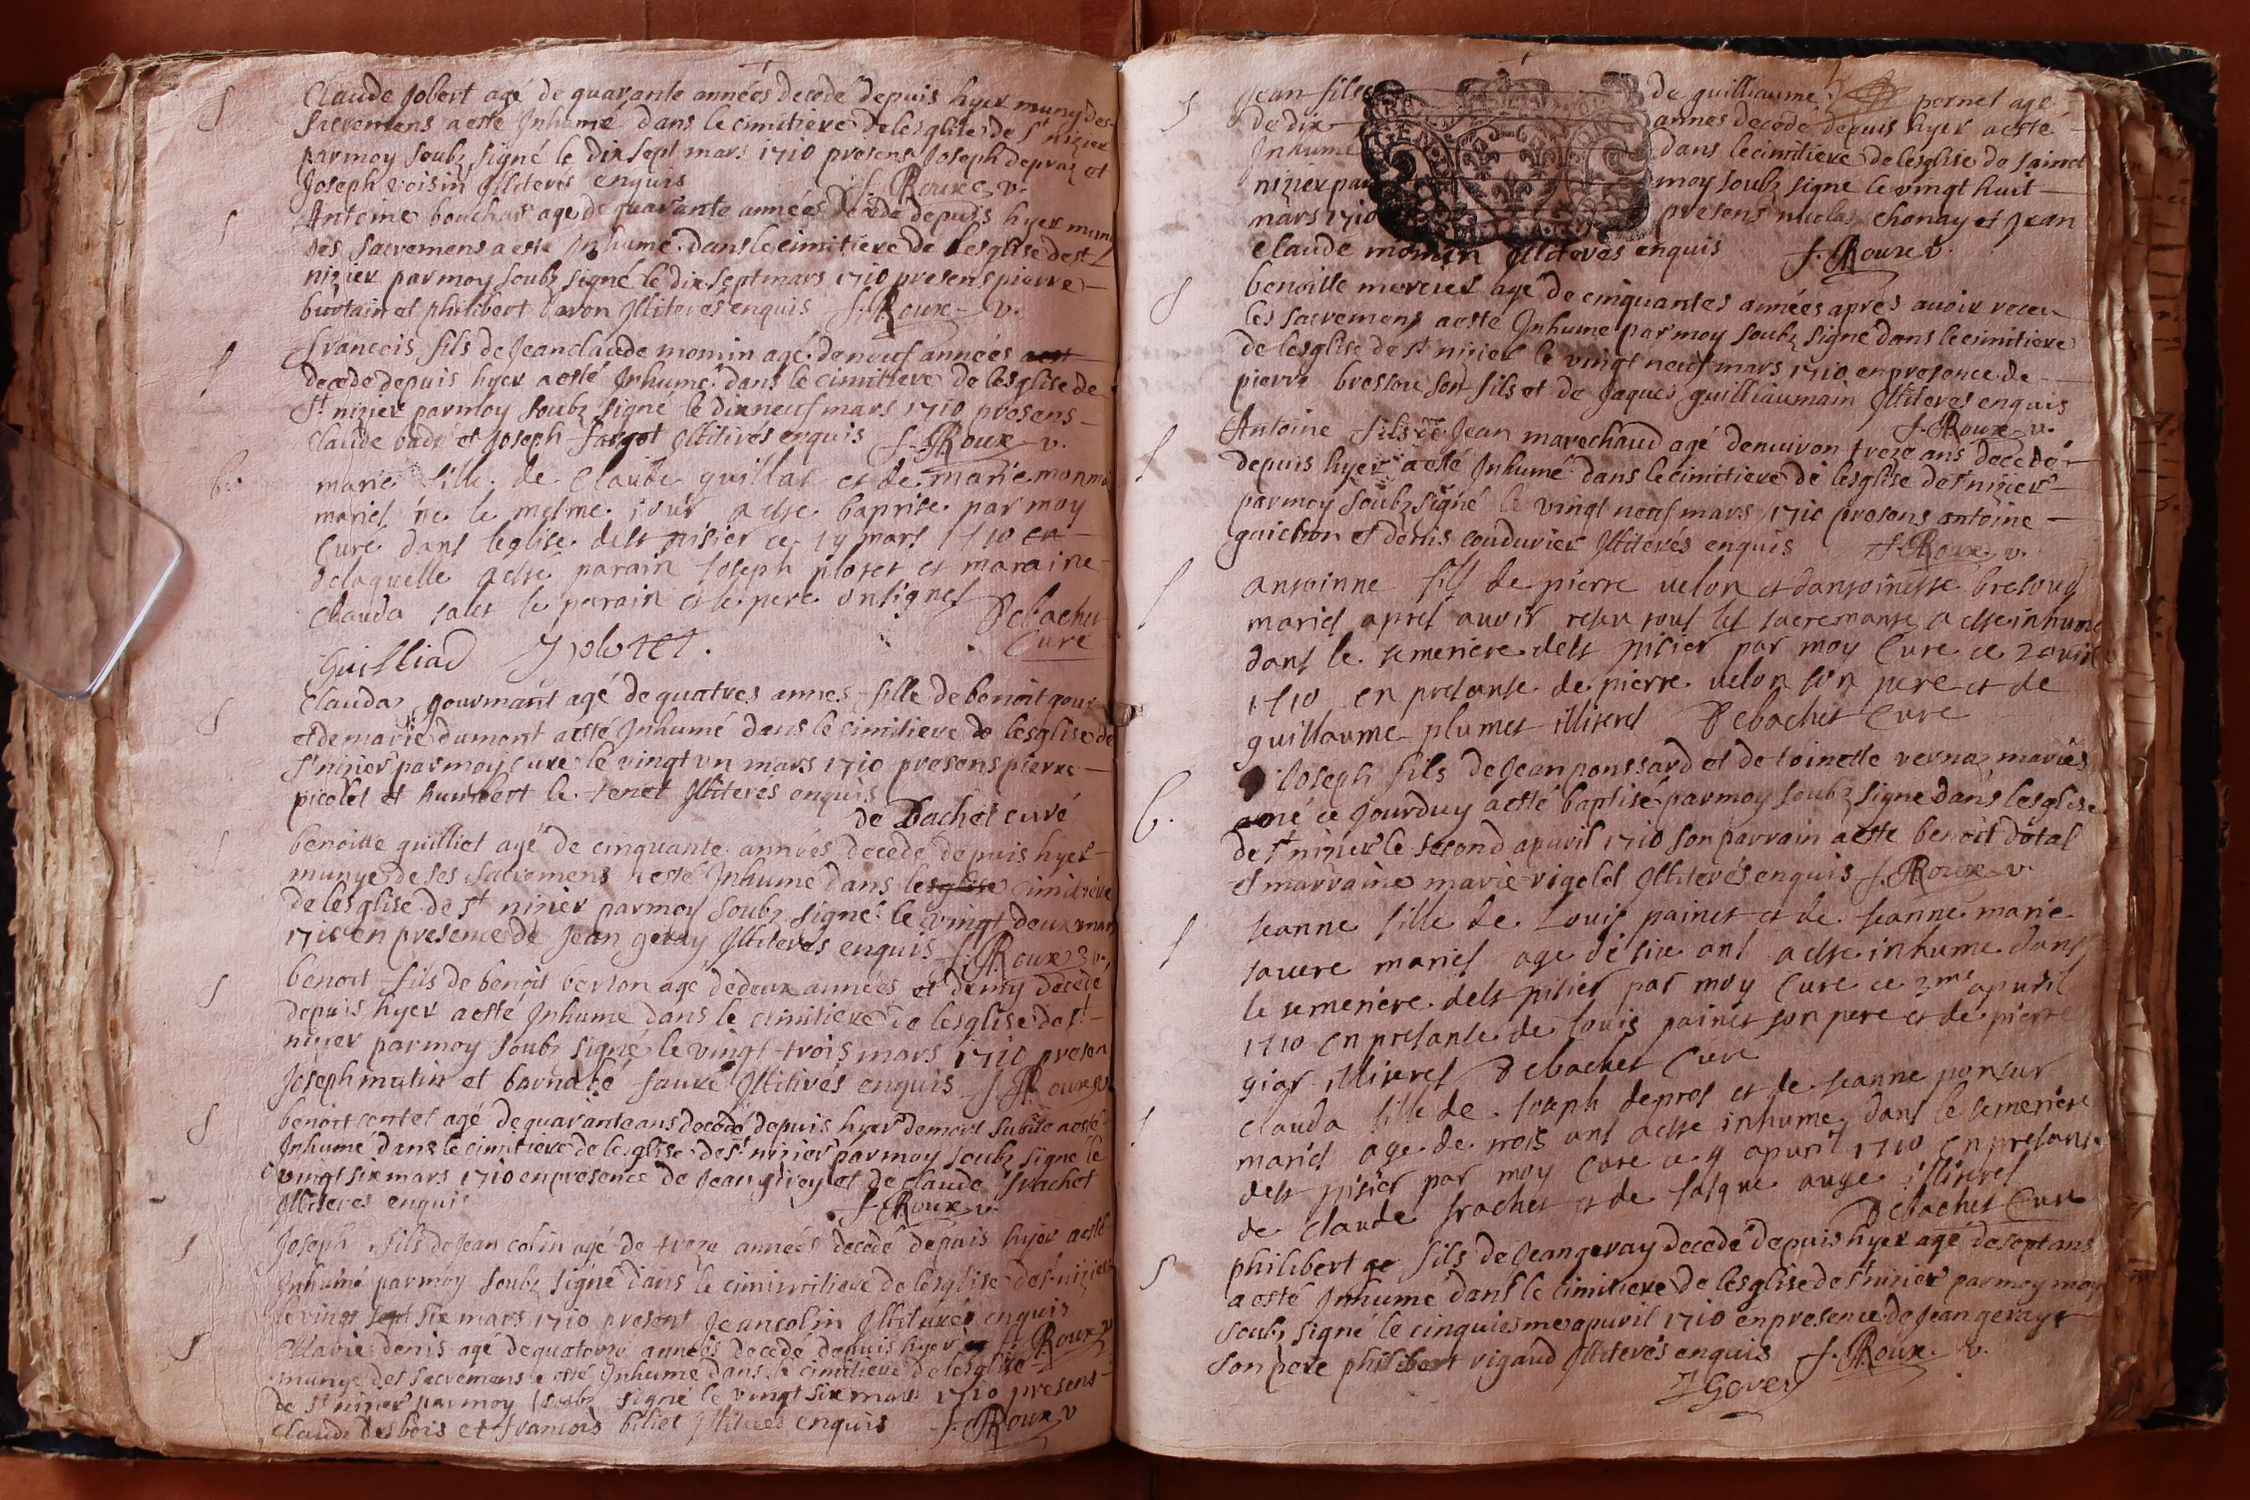 S Claude Jobert agé de quarante années decede depuis hyer muny des
sacremens a esté Inhumé dans le cimitiere de lesglise de St nizier
par moy soubz signé le dix sept mars 1710 presens Joseph depraz et
Joseph voisin Illiteres enquis f. Roux v.
S Antoine bouchar agé de quarante années decede depuis hyer muny
des sacremens a esté Inhumé dans le cimitiere de lesglise de st
nizier par moy soubz signé le dix sept mars 1710 presens pierre
burtain et philibert baron Illiteres enquis f. Roux v.
S francois fils de Jean claude momin agé de neuf années
decede depuis hyer a esté Inhumé dans le cimitiere de lesglise de
St nizier par moy soubz signé le dix neuf mars 1710 presens
Claude badé et Joseph fargot Illiterés enquis f. Roux v.
b. marie fille de Claude guillat et de marie monmin
maries ne le mesme iour a este baptise par moy
Cure dans leglise dest nisier ce 19 mars 1710
de laquelle a este parain Joseph ploset et maraine
Clauda sales le parain et le pere on signes
Debachet
Cure
Guilliad
S Clauda gourmant agé de quatres annes fille de benoit gour
et de marie dumont a esté Inhumé dans le cimitiere de lesglise de
St nizier par moy cure le vingt un mars 1710 presens pierre
picolet et humbert le tenet Illiteres enquis
de Bachet curé
S benoitte guilliet agé de cinquante années decede depuis hyer
munye de ses sacremens a esté Inhumé dans lesglise cimitiere
de lesglise de st nizier par moy soubz signé le vingt deux mars
1710 en presence de Jean geray Illiteres enquis f. Roux v.
S benoit fils de benoit berson age de deux années et demy decédé
depuis hyer a esté Inhumé dans le cimitiere de lesglise de st
nizier par moy soubz signé le vingt trois mars 1710 presen
Joseph matin et barnabé faure Illiterés enquis f. Roux v
S benoit contet agé de quarante ans decedé depuis hyer de mort subite a esté
Inhumé dans le cimitiere de lesglise de st nizier par moy soubz signé le
vingt six mars 1710 en presence de Jean direy et de claude frachet
Illiteres enquis f. Roux v.
S Joseph fils de Jean colin agé de treze années decédé depuis hyer a esté
Inhumé par moy soubz signé dans le cimimitiere de lesglise de st nizier
le vingt sept six mars 1710 present Jean colin Illiterés enquis
f. Roux v
S Marie denis agé de quatorze années decédé depuis hyer
munye des sacremens a esté Inhumé dans le cimitiere de lesglise
de st nizier par moy soubz signé le vingt six mars 1710 presens
Claude desbois et francois billiet Illiteres enquis f. Roux v
S Jean fils de guilliaume pernet agé
de dix annes decedé depuis hyer a esté
Inhumé dans le cimitiere de lesglise de sainct
nizier par moy soubz signé le vingt huit
mars 1710 presens nicolas chonay et Jean
claude momin Illiteres enquis f. Roux v.
S benoitte mercier agé de cinquantes années apres avoir receu
les sacremens a esté Inhumé par moy soubz signé dans le cimitiere
de lesglise de st nizier le vingt neuf mars 1710 en presence de
pierre bressou son fils et de Jaques guilliaumain Illiteres enquis
f. Roux v.
S Antoine fils de Jean marechaud agé denuiron treze ans decedé
depuis hyer a esté Inhumé dans le cimitiere de lesglise de st nizier
par moy soubz signé le vingt neuf mars 1710 presens antoine
guichon et denis couduvier Illiterés enquis f. Roux v.
S antoinne fils de pierre velon et dantoinette bresoud
maries apres auoir reseu tous les sacremants a este inhume
dans le semetiere dest nisier par moy Cure ce 2 avril
1710 en presanse de pierre velon son pere et de
guillaume plumet illiteres Debachet Cure
b. Joseph fils de Jean ponssard et de toinette vernaz mariés
né ce Jourduy a esté baptisé par moy soubz signe dans lesglise
de st nizier le second apuril 1710 son parrain a esté benoit dotal
et marraine marie rigolet Illiterés enquis f. Roux v.
S Jeanne fille de Louis painet et de Jeanne marie
tavere maries age de six ans a este inhume dans
le semetiere dest nisier par moy Cure ce 3me apuril
1710 en presanse de Louis painet son pere et de pierre
giar illiteres Debachet Cure
S Clauda fille de Joseph depres et de Jeanne ponsur
maries age de trois ans a este inhume dans le semetiere
dest nisier par moy Cure ce 4 apuril 1710 en presanse
de Claude frachet et de Jasque auge illiteres
Debachet Cure
S philibert ge fils de Jean geray decede depuis hyer agé de sept ans
a esté Inhumé dans le cimitiere de lesglise de st nizier par moy moy
soubz signé le cinquiesme apuril 1710 en presence de Jean geray
son pere philibert rigaud Illiterés enquis f. Roux. v.